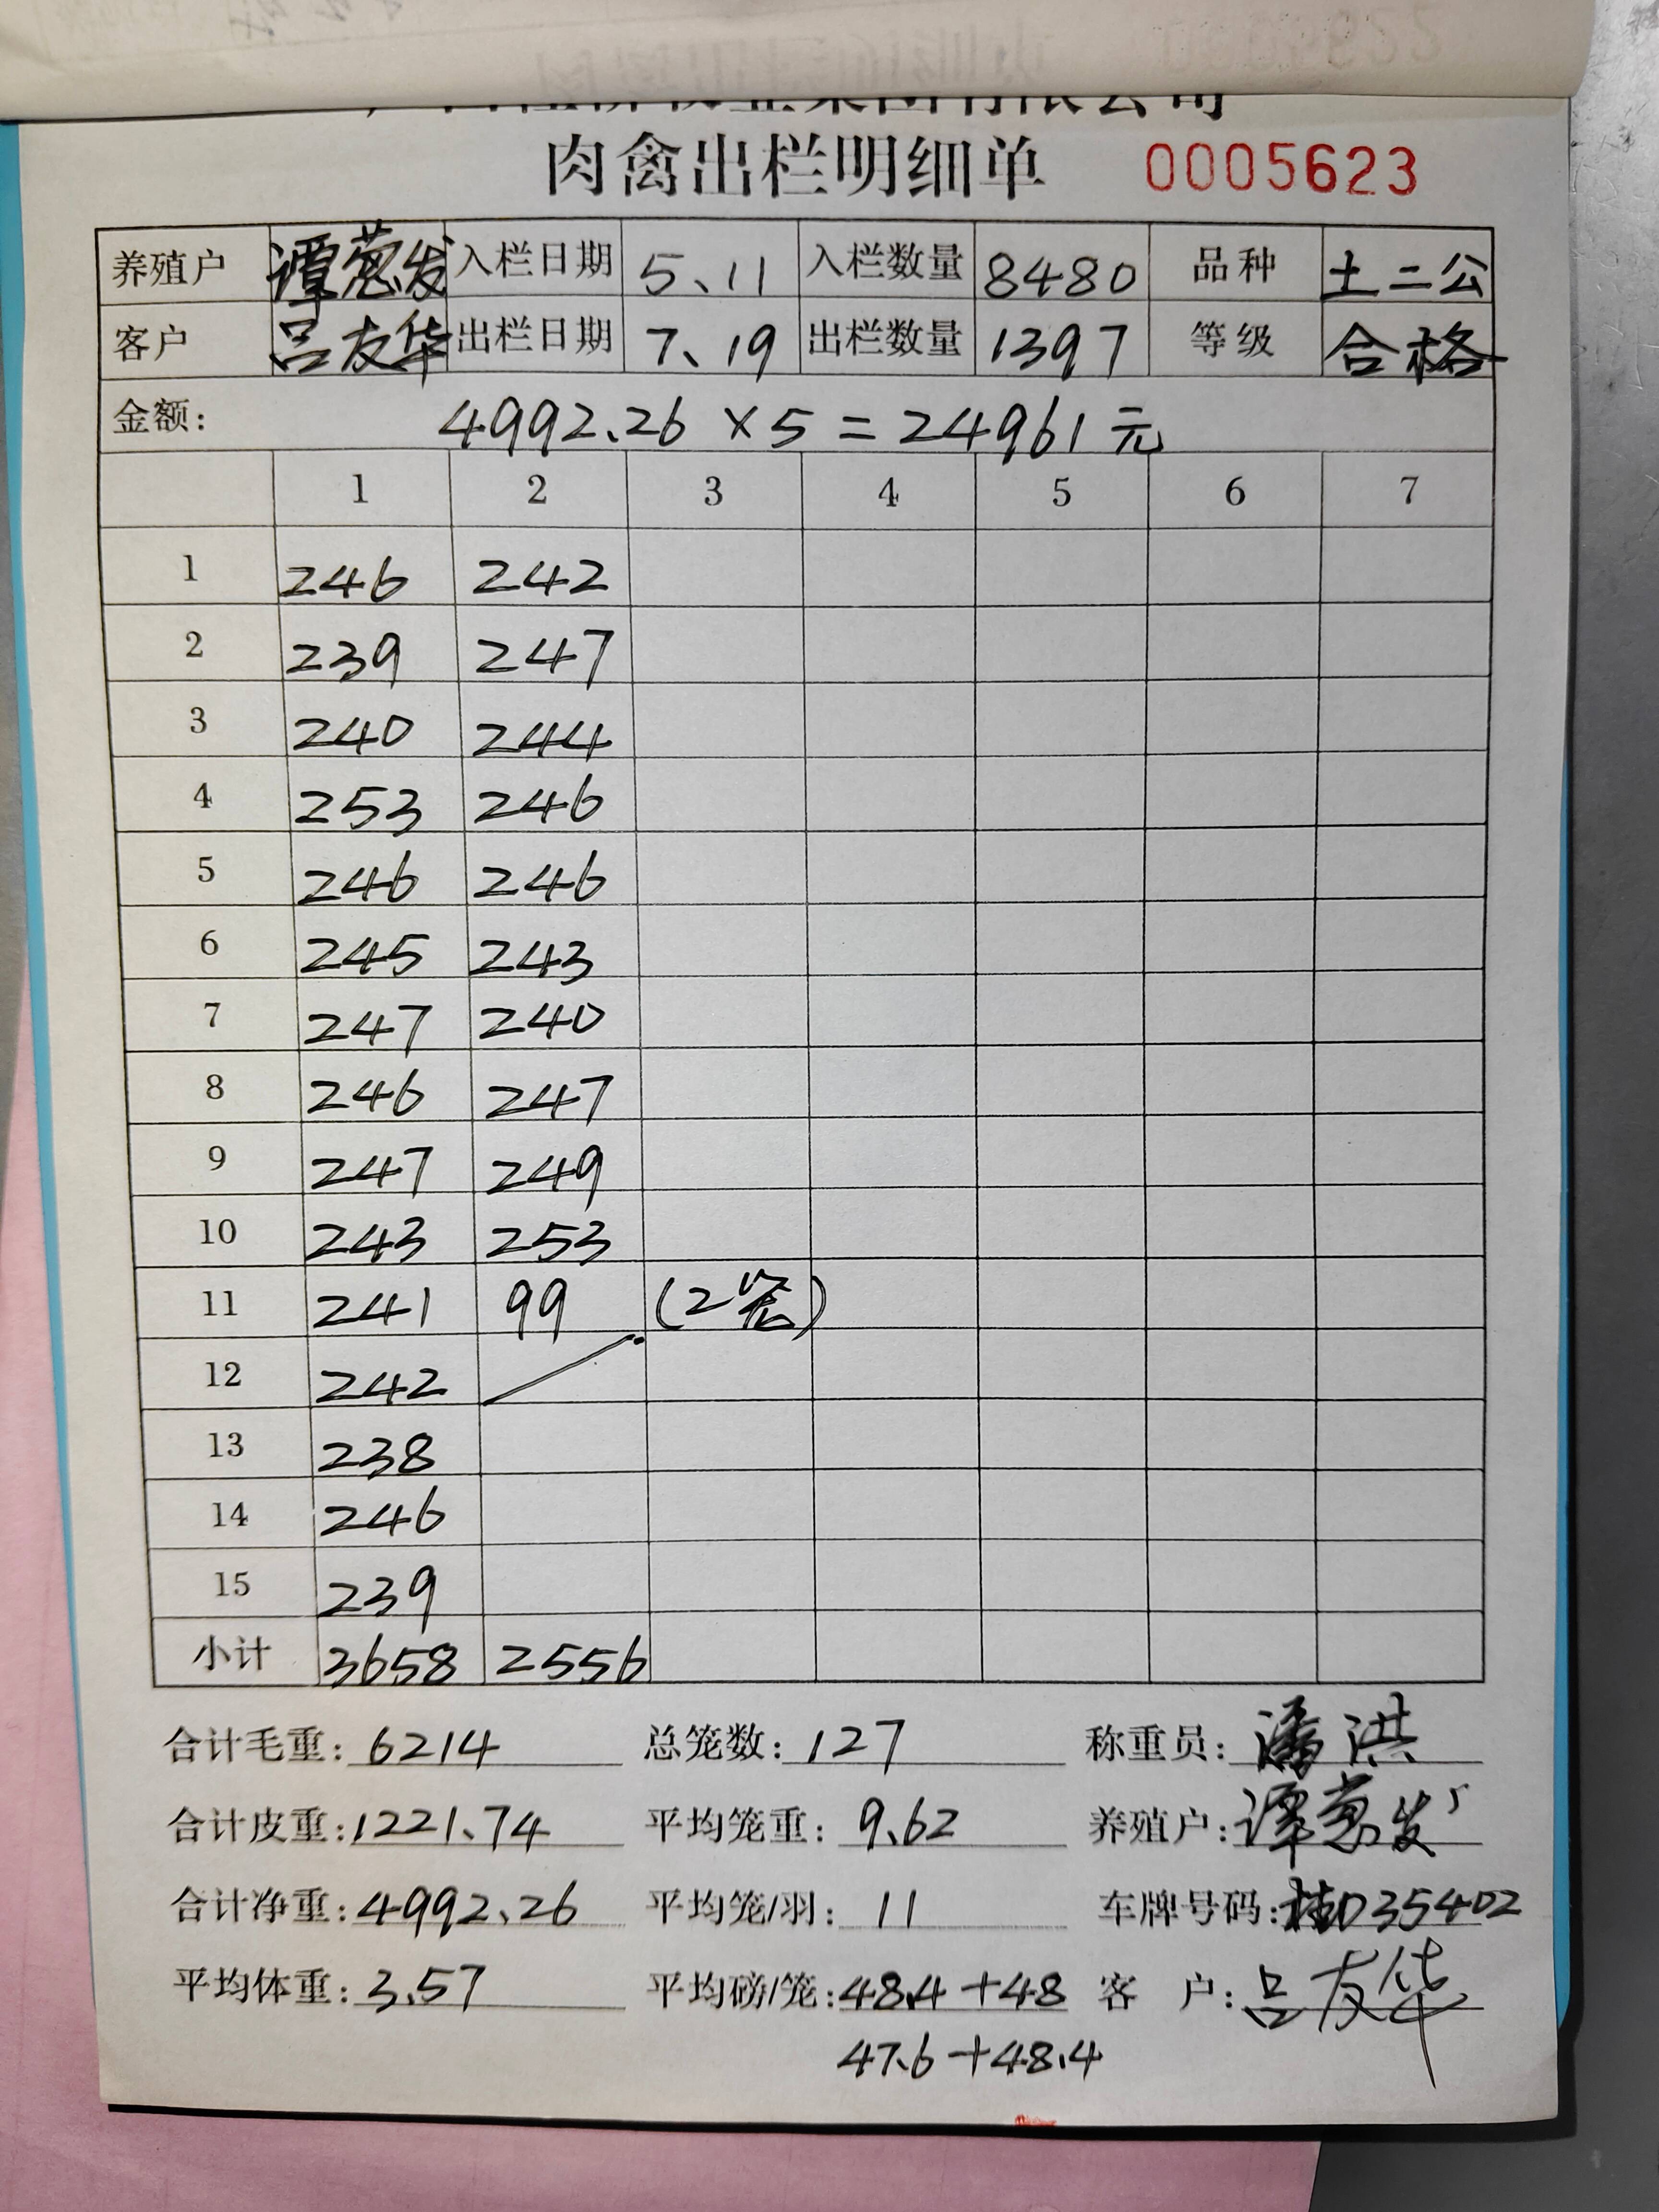 集团有限公司
肉禽出栏明细单 0005623
养殖户 谭葱发 入栏日期 5、11 入栏数量 8480 品种 土二公
客户 吕友华 出栏日期 7、19 出栏数量 1397 等级 合格
金额: 4992.26 × 5 = 24961 元
1 2 3 4 5 6 7
1 246 242
2 239 247
3 240 244
4 253 246
5 246 246
6 245 243
7 247 240
8 246 247
9 247 249
10 243 253
11 241 99 (2笼)
12 242
13 238
14 246
15 239
小计 3658 2556
合计毛重: 6214 总笼数: 127 称重员: 潘洪
合计皮重: 1221.74 平均笼重: 9.62 养殖户: 谭葱发
合计净重: 4992.26 平均笼/羽: 11 车牌号码: 桂D35402
平均体重: 3.57 平均磅/笼: 48.4 + 48 客 户: 吕友华
47.6 + 48.4